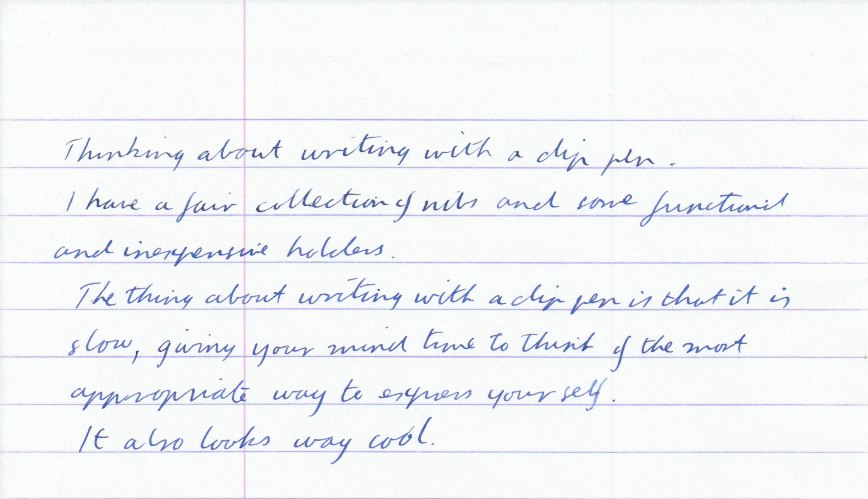 Thinking about writing with a dip pen.
I have a fair collection of nibs and some functional
and inexpensive holders.
The thing about writing with a dip pen is that it is
slow, giving your mind time to think of the most
appropriate way to express yourself.
It also looks way cool.